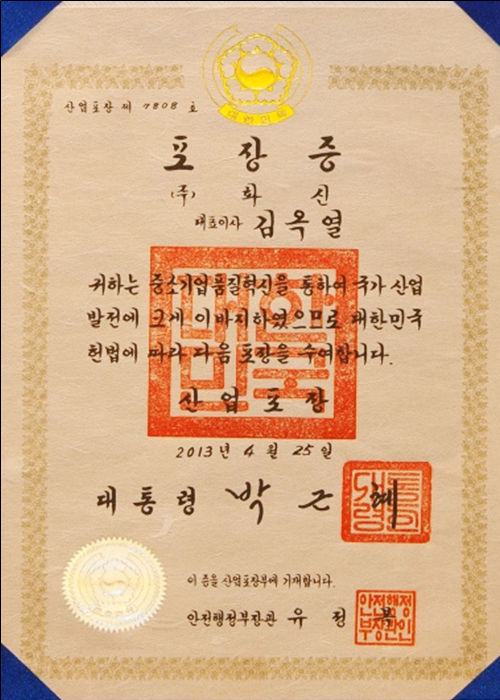 대한민국
산업포장 제 7808 호
포장증
(주) 화신
대표이사 김옥열
귀하는 중소기업품질혁신을 통하여 국가 산업
발전에 크게 이바지하였으므로 대한민국
헌법에 따라 다음 포장을 수여합니다.
산업포장
2013년 4월 25일
대통령 박근혜
이 증을 산업포장부에 기재합니다.
안전행정부장관 유정복
안전행정
부장관인